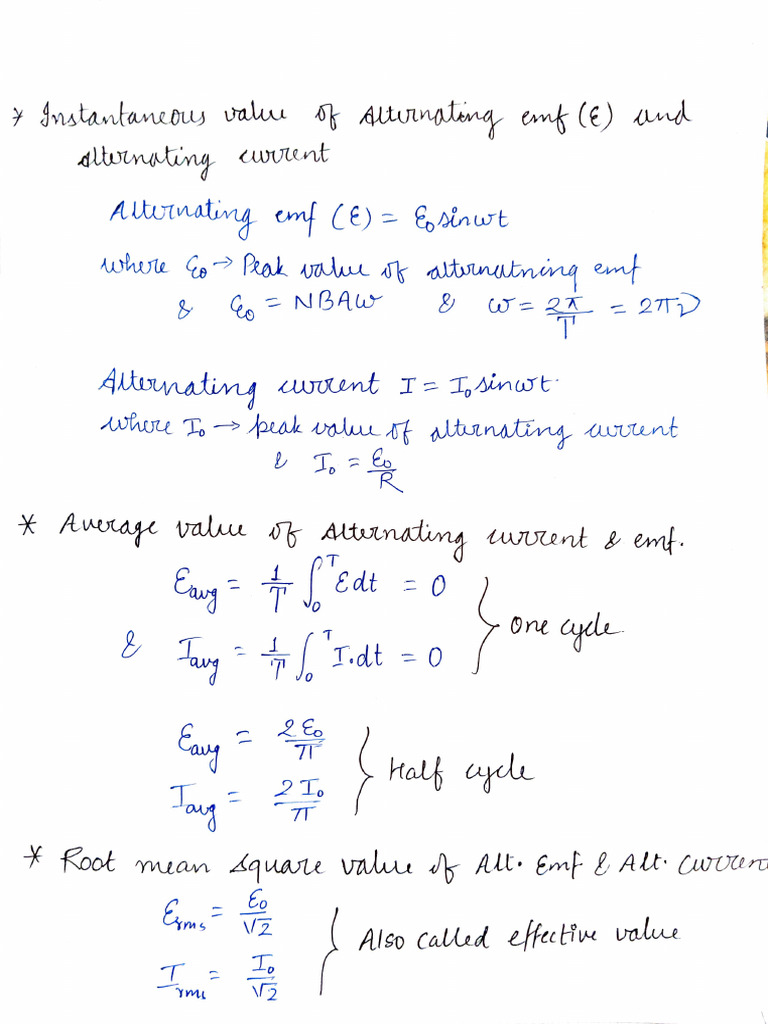 * Instantaneous value of Alternating emf (ε) and
alternating current
Alternating emf (ε) = ε₀ sinωt
where ε₀ → Peak value of alternatning emf
& ε₀ = NBAω & ω = 2π/T = 2πν
Alternating current I = I₀ sinωt
where I₀ → peak value of alternating current
& I₀ = ε₀/R
* Average value of Alternating current & emf.
εavg = 1/T ∫₀ᵀ εdt = 0
& Iavg = 1/T ∫₀ᵀ I.dt = 0
} one cycle.
εavg = 2ε₀/π
Iavg = 2I₀/π
} Half cycle
* Root mean square value of Alt. Emf & Alt. Curren
εrms = ε₀/√2
Irms = I₀/√2
} Also called effective value